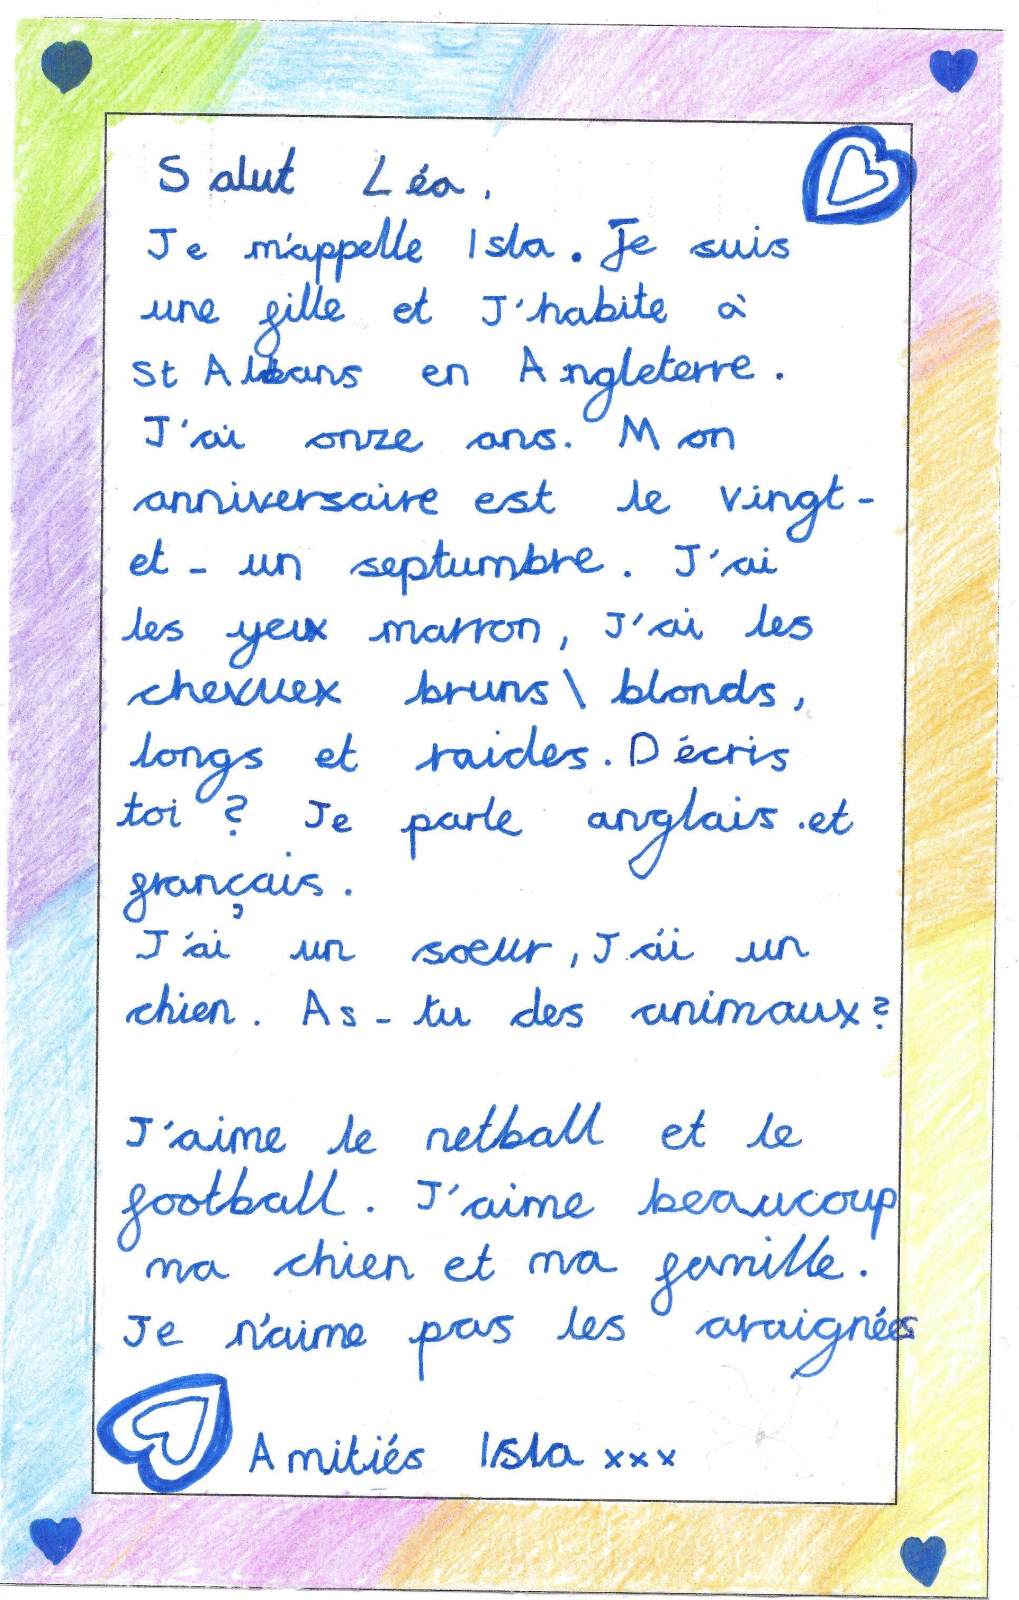 Salut Léa,
Je m'appelle Isla. Je suis
une fille et J'habite à
St Albans en Angleterre.
J'ai onze ans. Mon
anniversaire est le vingt-
et-un septumbre. J'ai
les yeux marron, J'ai les
chevuex bruns\ blonds,
longs et raides. Décris
toi ? Je parle anglais et
français.
J'ai un soeur, J'ai un
chien. As-tu des animaux?
J'aime le netball et le
football. J'aime beaucoup
ma chien et ma famille.
Je n'aime pas les araignées
Amitiés Isla xxx